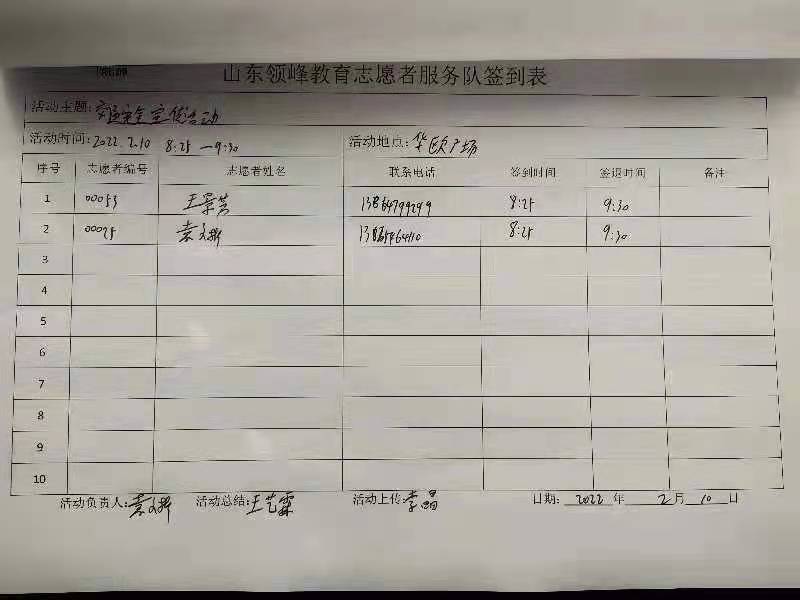 山东领峰教育志愿者服务队签到表
活动主题:交通安全宣传活动
活动时间:2022.2.10 8:25 —9:30 活动地点:华欧广场
序号 志愿者编号 志愿者姓名 联系电话 签到时间 签退时间 备注
1 00053 王景芳 8:25 9:30
2 00025 袁文娇 8:25 9:30
3
4
5
6
7
8
9
10
活动负责人:袁文娇 活动总结:王艺霖 活动上传:李晶 日期: 2022 年 2 月 10 日